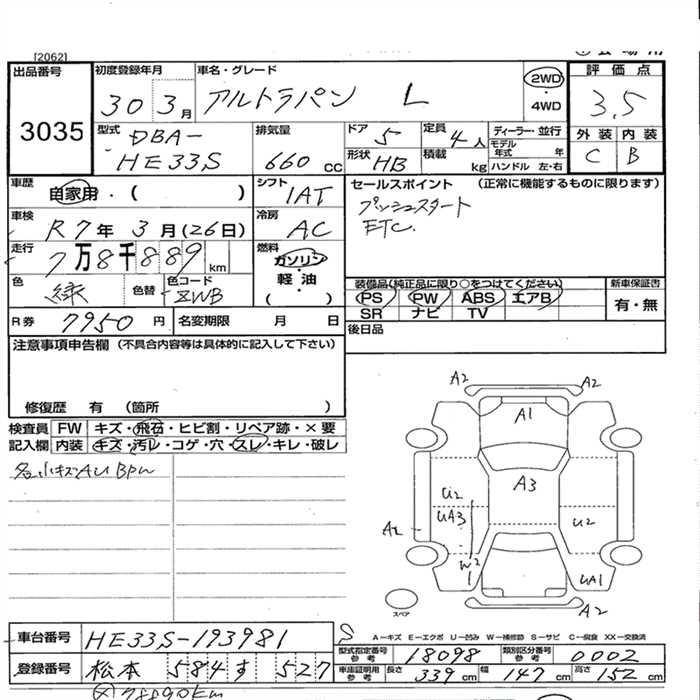 [2062]
出品番号
3035
初度登録年月
30 3月
車名・グレード
アルトラパン L
2WD
・
4WD
評価点
3.5
外装 内装
C B
型式
DBA-
HE33S
排気量
660 cc
ドア 5
形状 HB
定員 4人
積載 kg
ディーラー・並行
モデル年式 年
ハンドル 左・右
車歴
自家用・( )
シフト
IAT
セールスポイント (正常に機能するものに限ります)
プッシュスタート
ETC.
車検
R7年 3月(26日)
冷房
AC
走行
7万8千889km
燃料
ガソリン・
軽油
( )
色
緑
色替
色コード
ZWB
装備品(純正品に限り○をつけてください)
PS PW ABS エアB
SR ナビ TV
新車保証書
有・無
R券 7950円
名変期限 月 日
後日品
注意事項申告欄(不具合内容等は具体的に記入して下さい)
修復歴 有 (箇所 )
検査員
記入欄
FW キズ・飛石・ヒビ割・リペア跡・×要
内装 キズ・汚レ・コゲ・穴・スレ・キレ・破レ
A2
A2
A1
A3
U2
UA3
U2
A2
W2
1
UA1
A2
スペア
A-キズ E-エクボ U-凹み W-補修跡 S-サビ C-腐食 XX-交換済
車台番号
HE33S-193981
登録番号
松本 584 す 527
型式指定番号
参考
18098
類別区分番号
参考
0002
車庫証明用
参考
長さ 339cm 幅 147cm 高さ 152cm